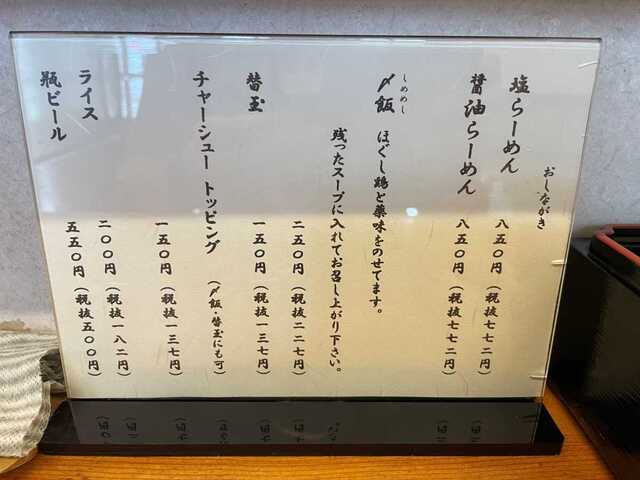 おしながき
塩らーめん 八五〇円（税抜七七二円）
醤油らーめん 八五〇円（税抜七七二円）
しめめし
〆飯 ほぐし鶏と薬味をのせてます。
残ったスープに入れてお召し上がり下さい。
二五〇円（税抜二二七円）
替玉 一五〇円（税抜一三七円）
チャーシュー トッピング （〆飯・替玉にも可）
一五〇円（税抜一三七円）
ライス 二〇〇円（税抜一八二円）
瓶ビール 五五〇円（税抜五〇〇円）